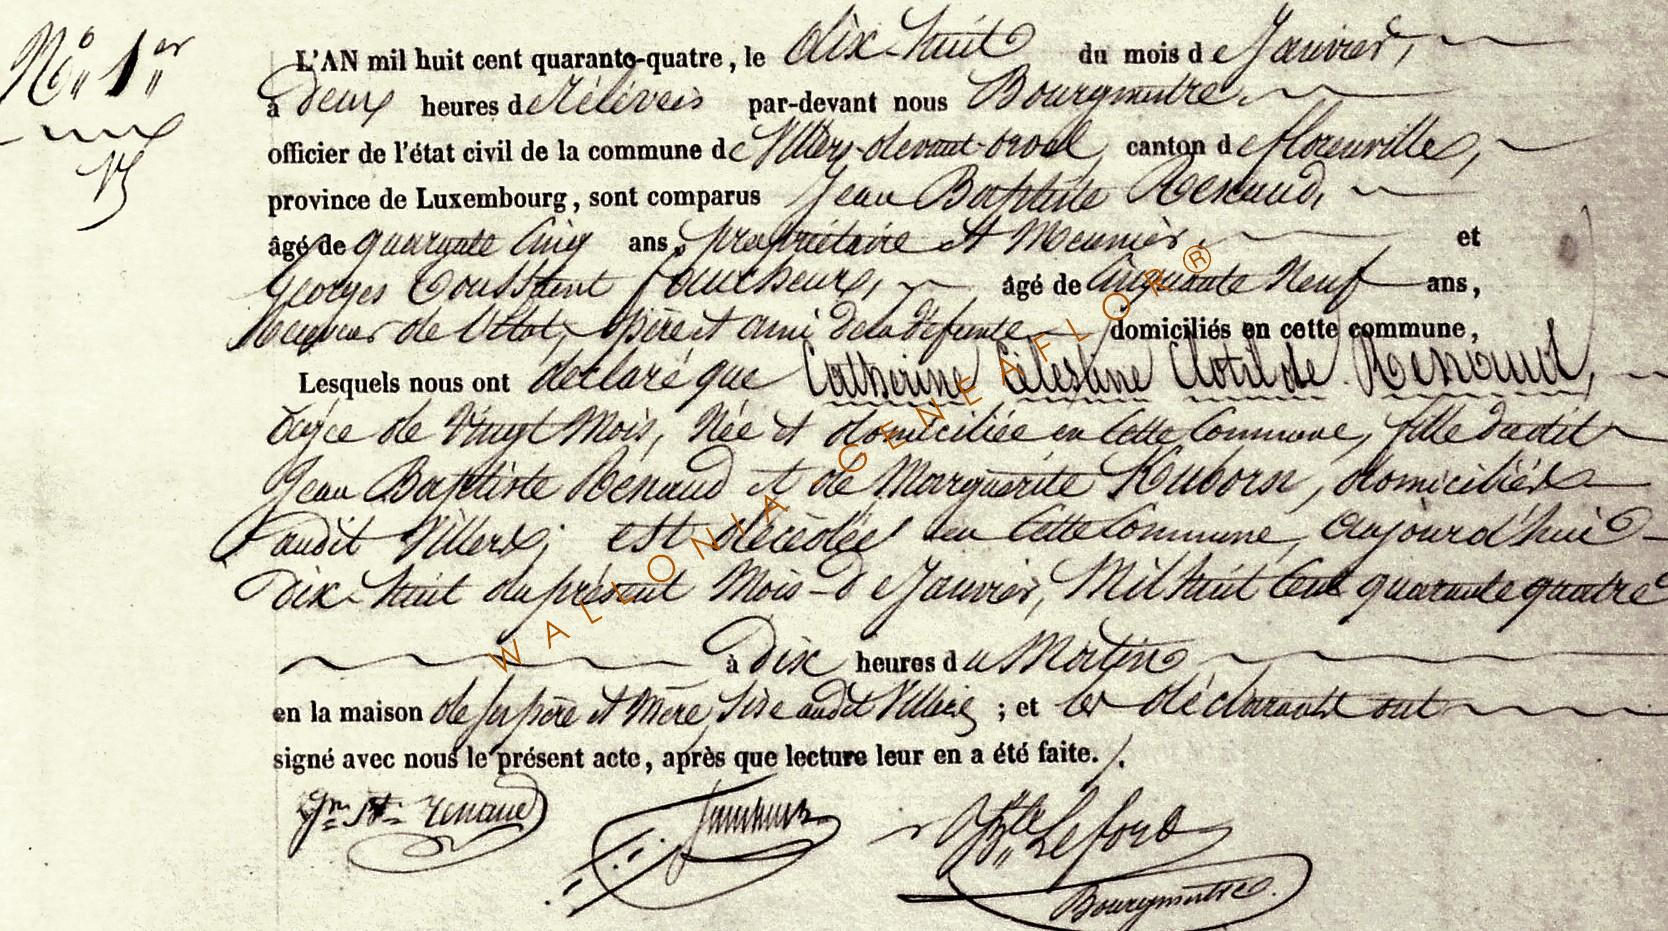 N° 1er
L'AN mil huit cent quarante-quatre, le dix-huit du mois de Janvier,
à deux heures de rélévées par-devant nous Bourgmestre
officier de l'état civil de la commune de Villers-devant-orval, canton de florenville,
province de Luxembourg, sont comparus Jean Baptiste Renaud,
âgé de quarante cinq ans, propriétaire et Meunier, et
Georges Toussaint âgé de Cinquante Neuf ans,
de l'Etat, père et ami de la défunte, domiciliés en cette commune,
Lesquels nous ont déclaré que Catherine Célestine Clotilde Renaud,
âgée de Vingt Mois, Née et domiciliée en cette Commune, fille dudit
Jean Baptiste Renaud et de Marguerite Kuborn, domiciliés
audit Villers, est décédée en cette Commune, aujourd'hui
dix-huit du présent Mois de Janvier, Mil huit Cent quarante quatre
à dix heures du Matin
en la maison de ses père et Mère, sise audit Villers ; et les déclarants ont
signé avec nous le présent acte, après que lecture leur en a été faite. /.
Jn Bte renaud
Bte Lefort
Bourgmestre.
WALLONIA GENEAFLOR®